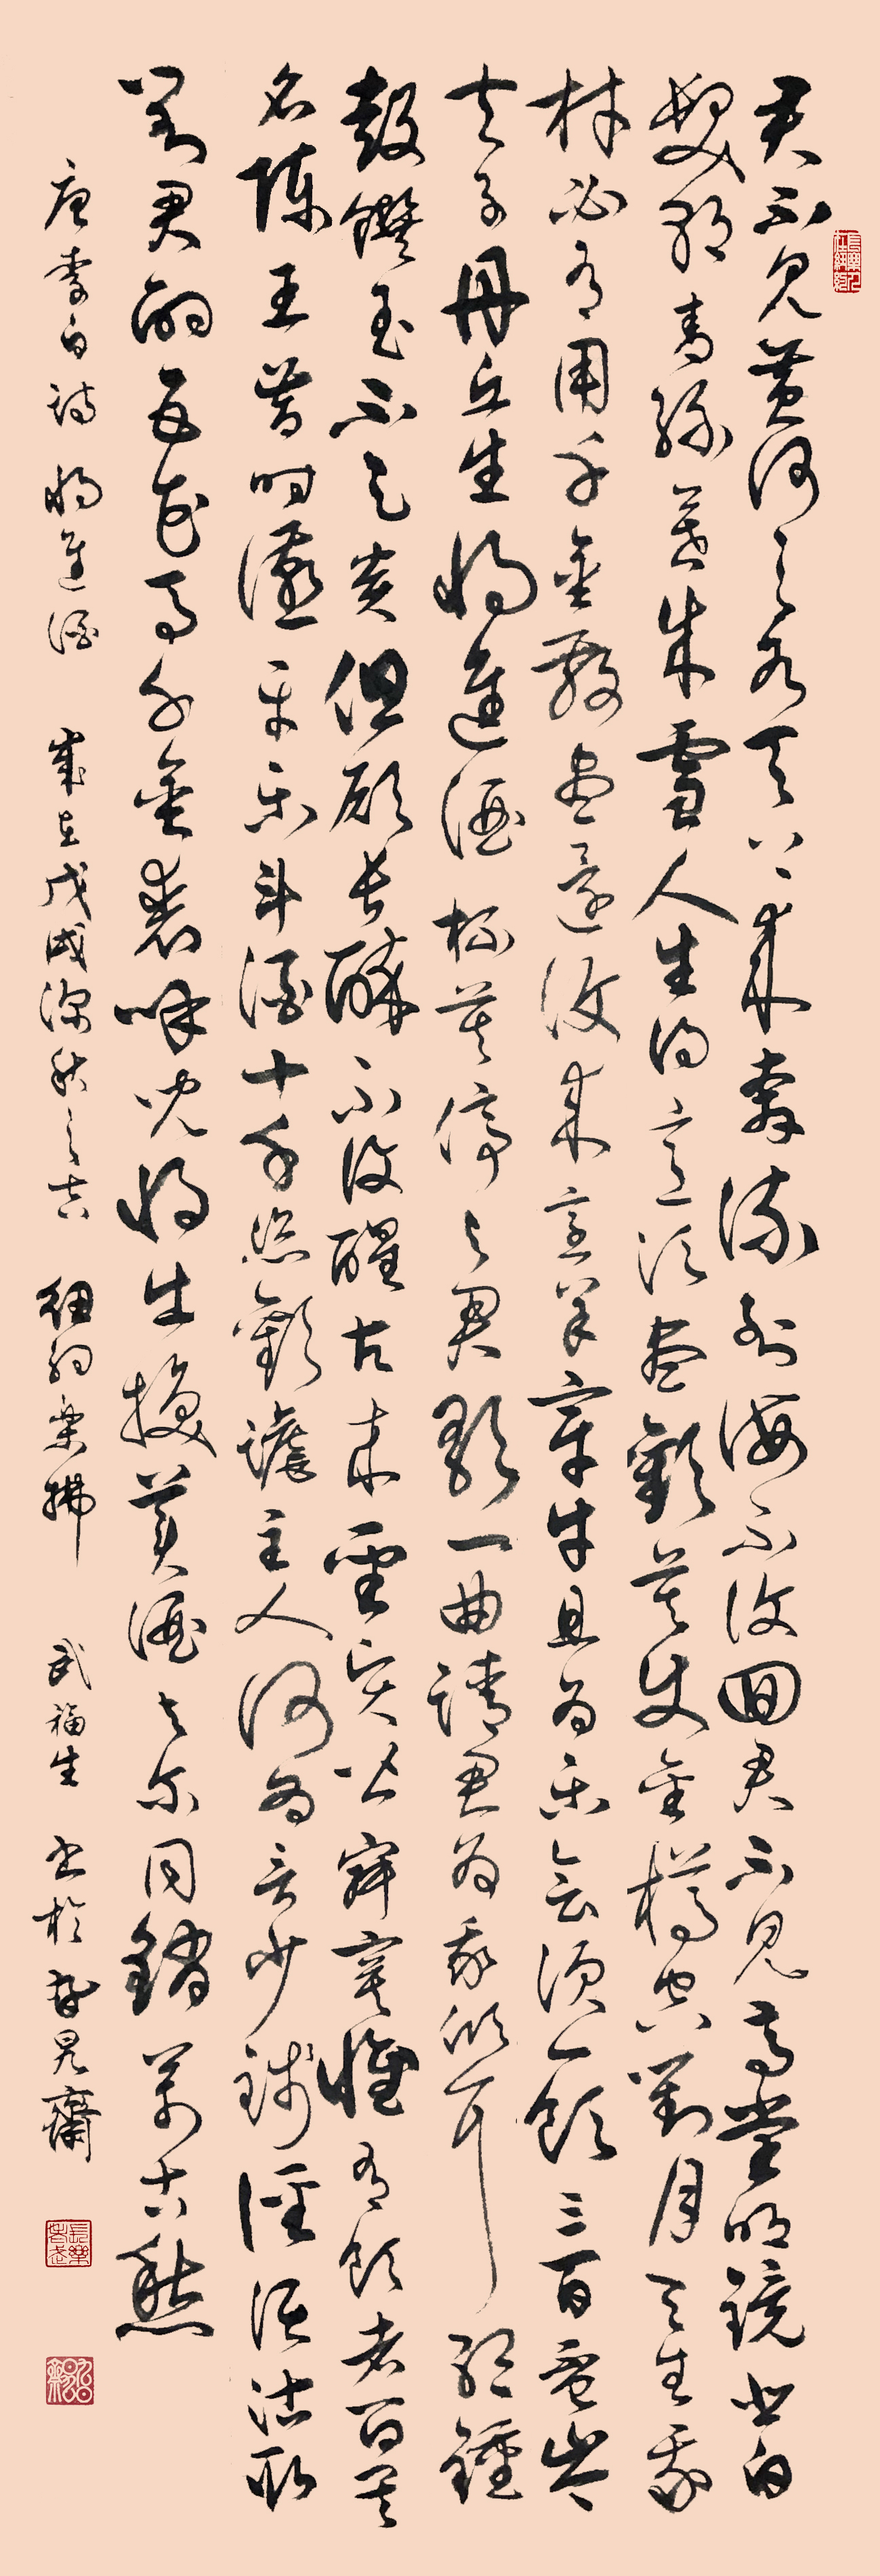 君不見黃河之水天上來奔流到海不復回君不見高堂明鏡悲白
髮朝青絲暮成雪人生得意須盡歡莫使金樽空對月天生我
材必有用千金散盡還復來烹羊宰牛且為樂會須一飲三百杯岑
夫子丹丘生將進酒杯莫停與君歌一曲請君為我傾耳聽鐘
鼓饌玉不足貴但願長醉不復醒古來聖賢皆寂寞惟有飲者留其
名陳王昔時讌平樂斗酒十千恣歡謔主人何為言少錢徑須沽取
對君酌五花馬千金裘呼兒將出換美酒與爾同銷萬古愁
唐李白詩將進酒 歲在戊戌深秋之吉 武福生 書於 齋